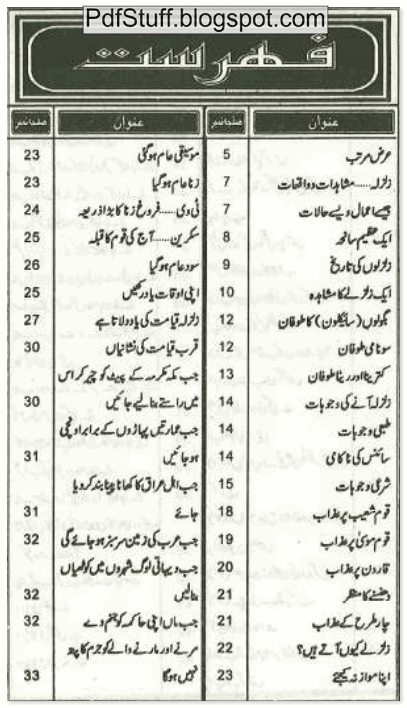 PdfStuff.blogspot.com
فہرست
عنوان صفحہ نمبر
عرض مرتب 5
زلزلہ ..... مشاہدات و واقعات 7
جیسے اعمال ویسے حالات 7
ایک عظیم سانحہ 8
زلزلوں کی تاریخ 9
ایک زلزلے کا مشاہدہ 10
بگولوں (سائیکلون) کا طوفان 12
سونامی طوفان 12
کترینا اور ریٹا طوفان 13
زلزلہ آنے کی وجوہات 14
طبعی وجوہات 14
سائنس کی ناکامی 14
شرعی وجوہات 15
قوم شعیب پر عذاب 18
قوم موسیٰ پر عذاب 19
قارون پر عذاب 20
دھنسنے کا منظر 21
چار طرح کے عذاب 21
زلزلے کیوں آتے ہیں؟ 22
اپنا موازنہ کیجئے 23
عنوان صفحہ نمبر
موسیقی عام ہوگئی 23
زنا عام ہوگیا 23
ٹی وی ..... فروغ زنا کا بڑا ذریعہ 24
سکرین ..... آج کی قوم کا قبلہ 25
سود عام ہوگیا 26
اپنی اوقات یاد رکھیں 25
زلزلہ قیامت کی یاد دلاتا ہے 27
قرب قیامت کی نشانیاں 30
جب مکہ مکرمہ کے پیٹ کو چیر کر اس
میں راستے بنا لیے جائیں 30
جب عمارتیں پہاڑوں کے برابر اونچی
ہو جائیں 31
جب اہل عراق کا کھانا پینا بند کر دیا
جائے 31
جب عرب کی زمین سرسبز ہو جائے گی 32
جب دیہاتی لوگ شہروں میں کوٹھیاں
بنالیں 32
جب ماں اپنی حاکمہ کو جنم دے 32
مرنے اور مارنے والے کو جرم کا پتہ
نہیں ہوگا 33